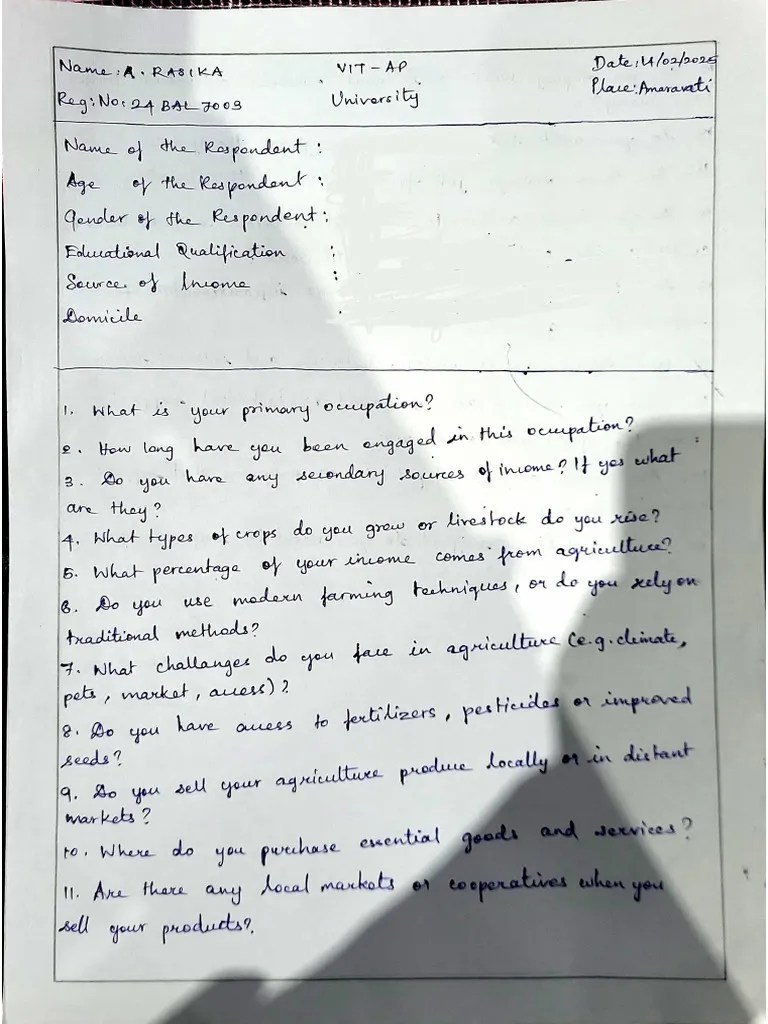 Name: A. RASIKA VIT-AP Date: 4/02/2025
Reg: No: 24 BAL 7003 University Place: Amaravati
Name of the Respondent :
Age of the Respondent :
Gender of the Respondent :
Educational Qualification :
Source of Income :
Domicile :
1. What is your primary occupation?
2. How long have you been engaged in this occupation?
3. Do you have any secondary sources of income? If yes what
are they?
4. What types of crops do you grow or livestock do you rise?
5. What percentage of your income comes from agriculture?
6. Do you use modern farming techniques, or do you rely on
traditional methods?
7. What challanges do you face in agriculture (e.g. climate,
pets, market, access)?
8. Do you have access to fertilizers, pesticides or improved
seeds?
9. Do you sell your agriculture produce locally or in distant
markets?
10. Where do you purchase essential goods and services?
11. Are there any local markets or cooperatives when you
sell your products?